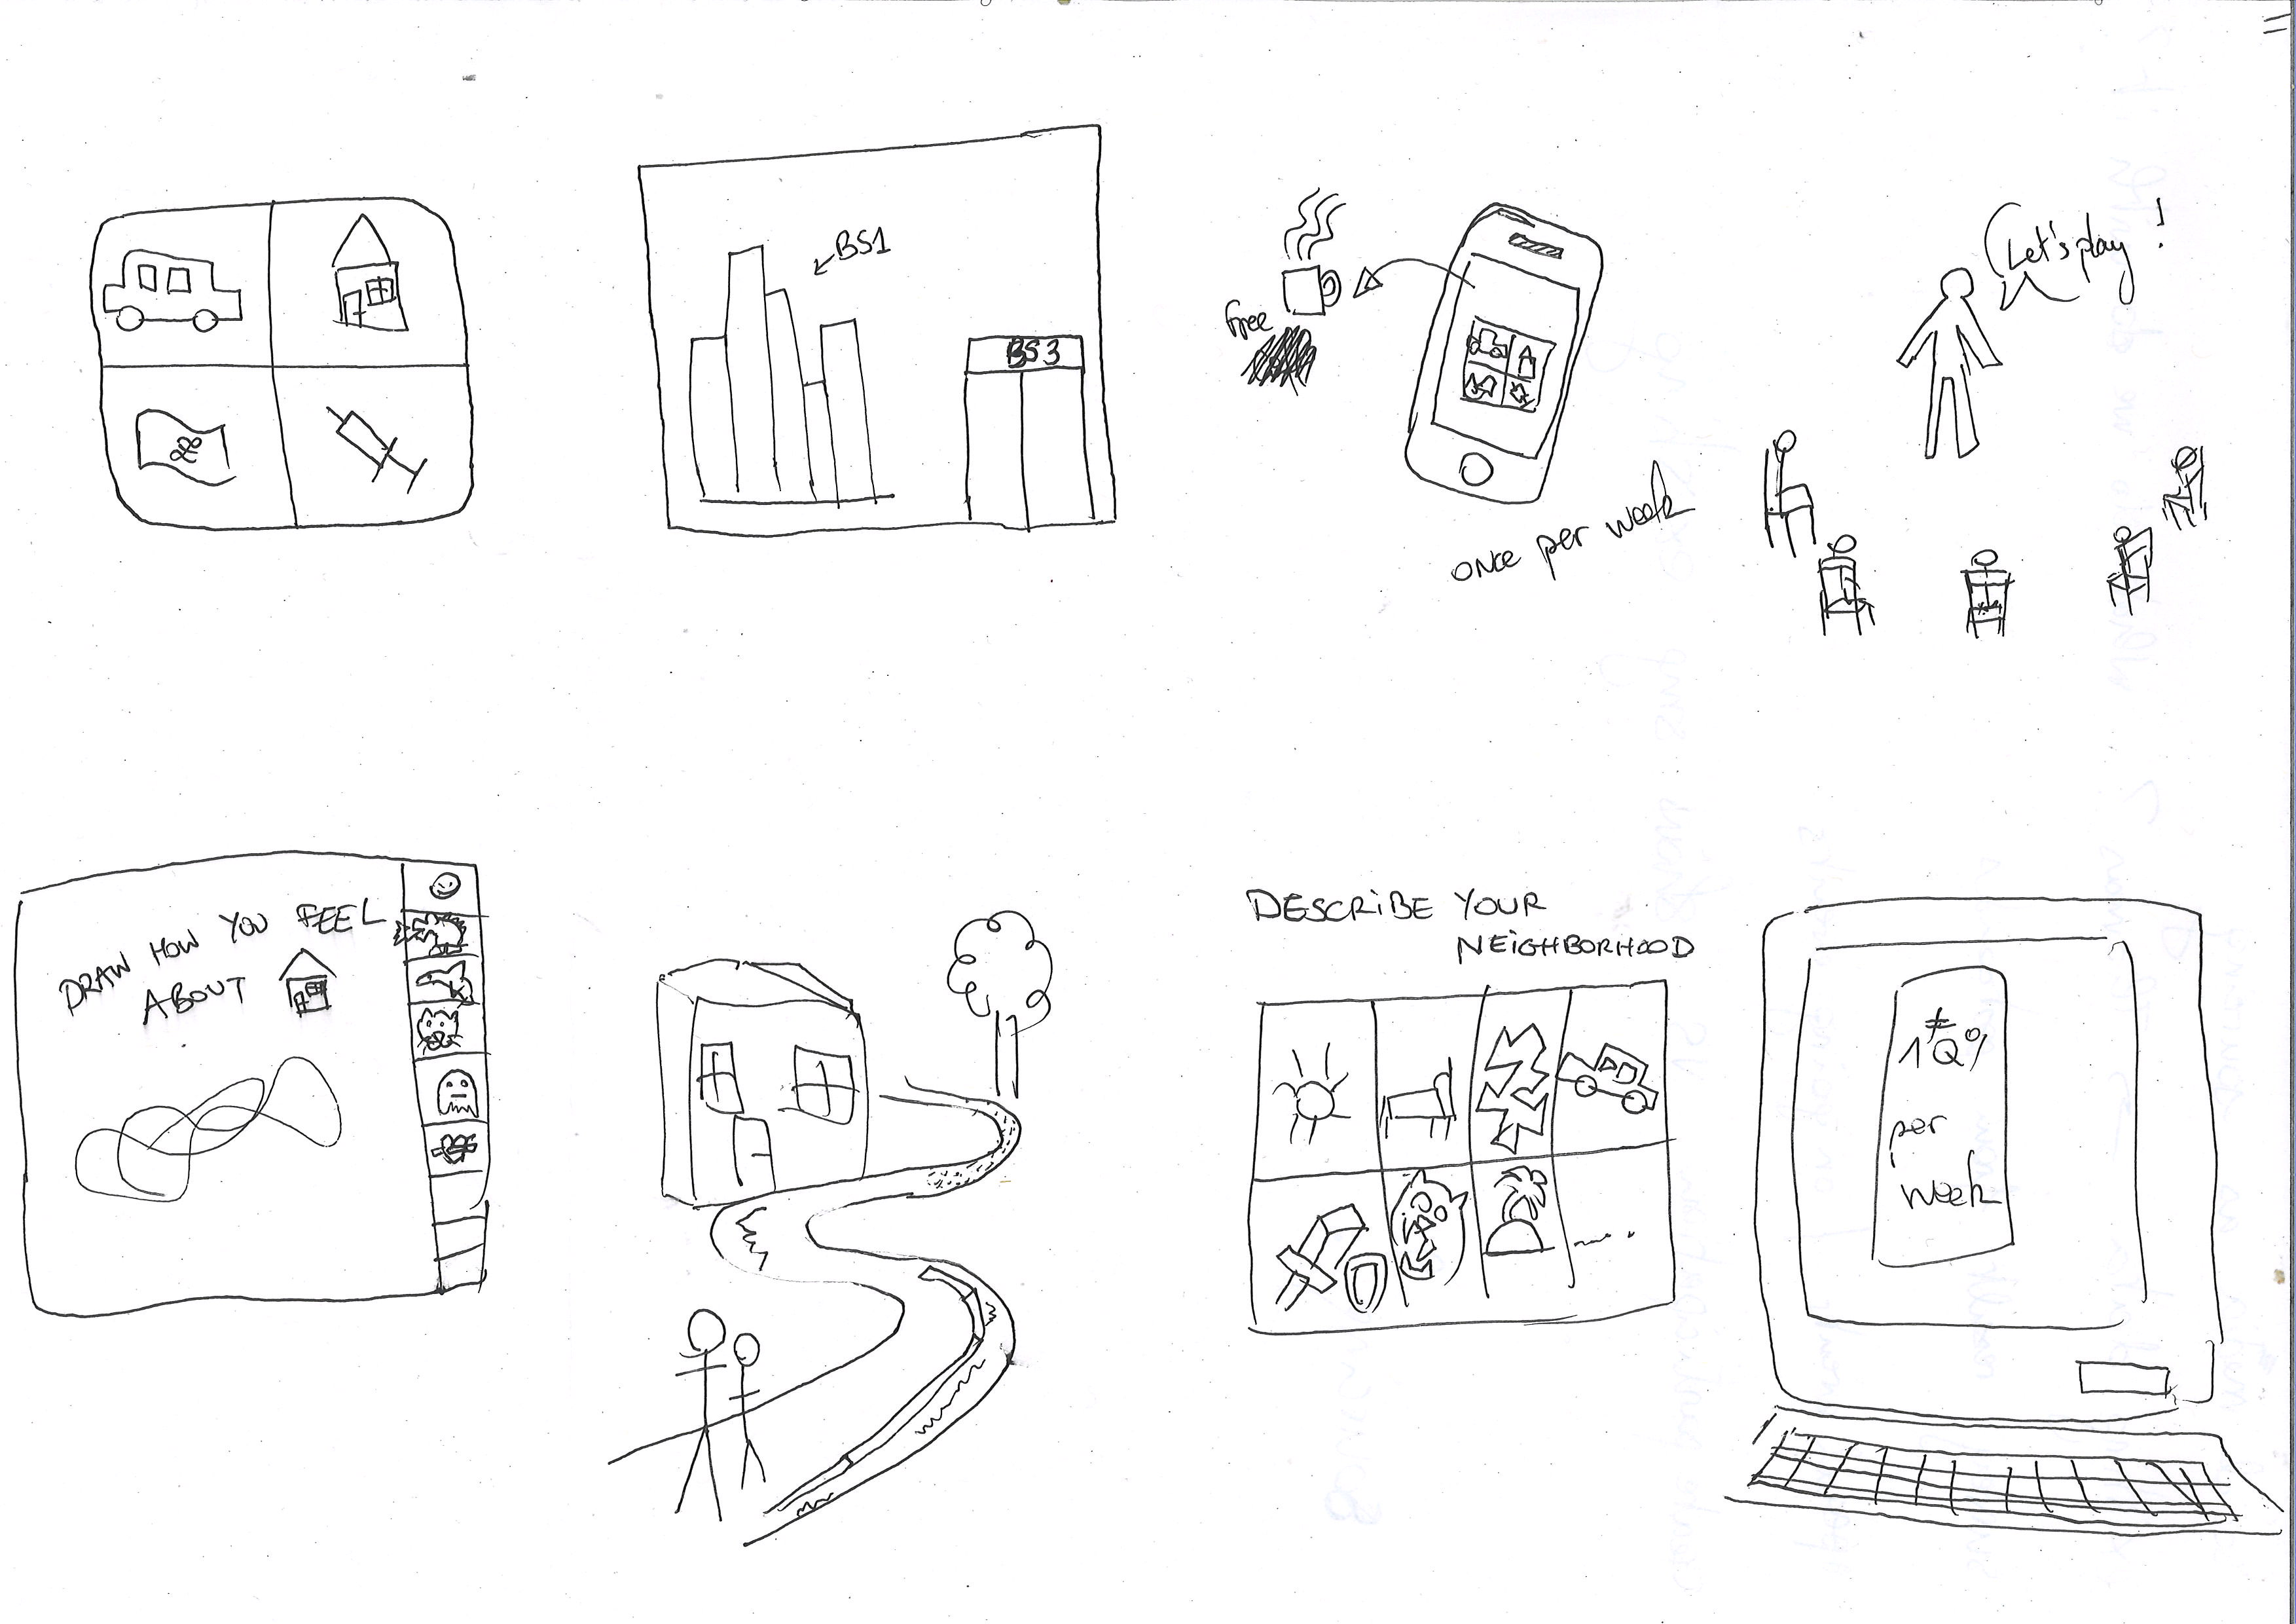 BS1
BS3
£
free
once per week
Let's play !
DRAW HOW YOU FEEL
ABOUT
DESCRIBE YOUR
NEIGHBORHOOD
per
week